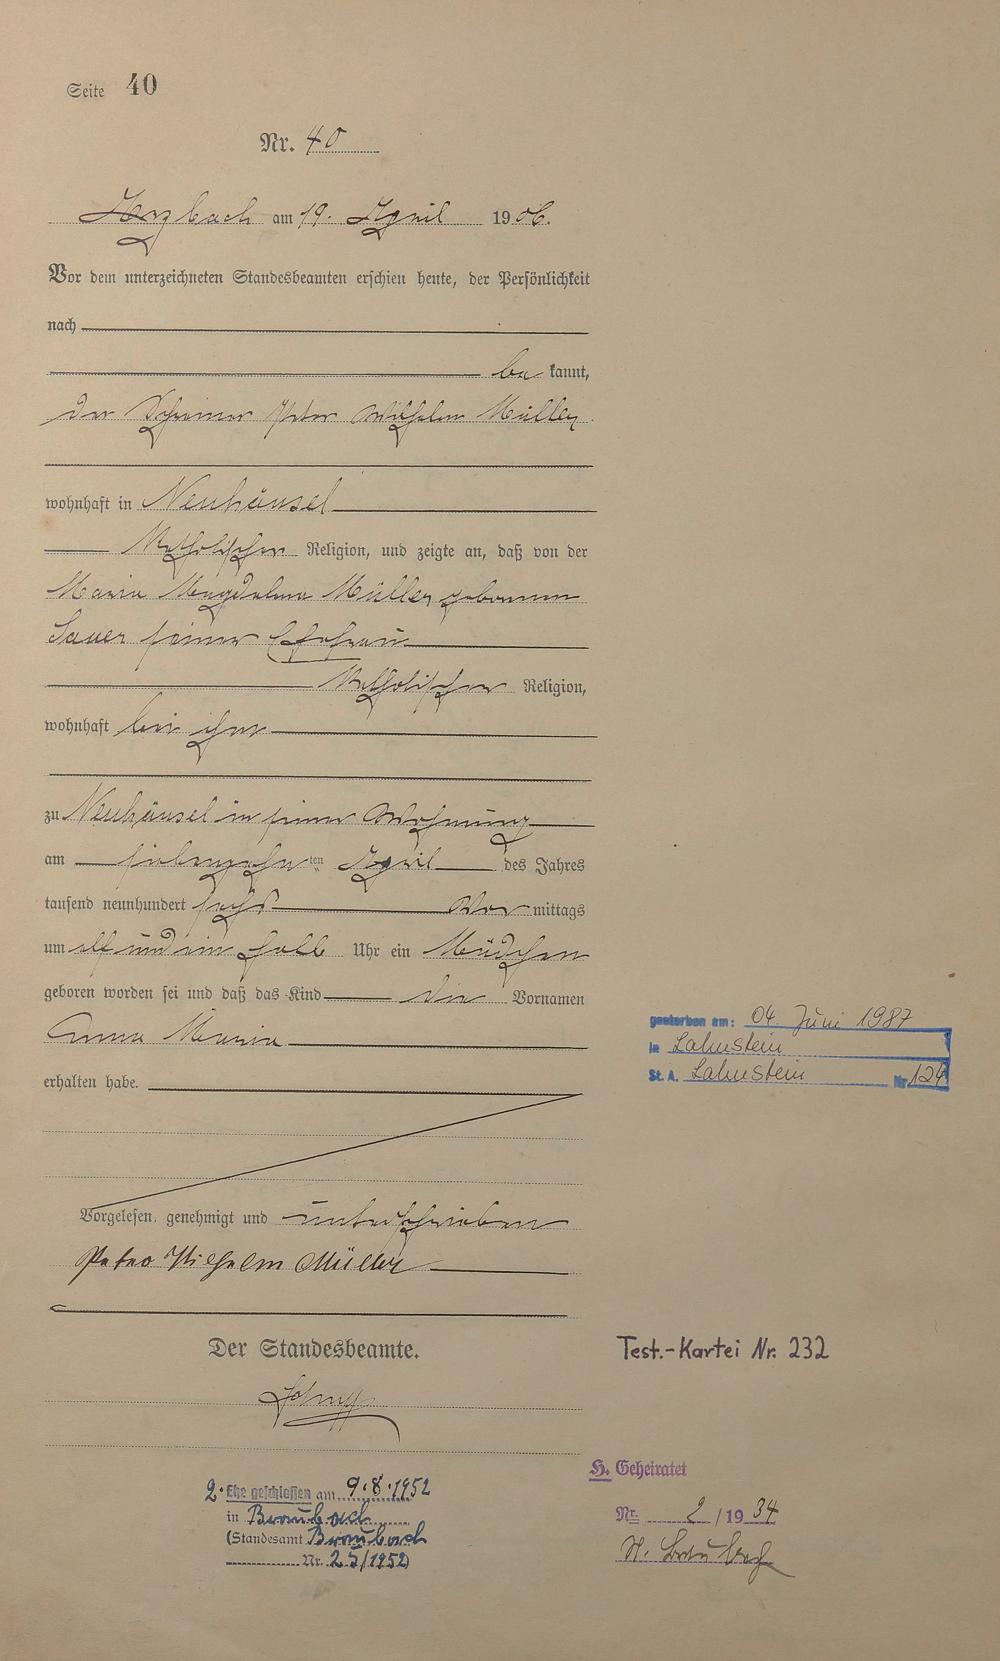 Seite 40
Nr. 40
am 19. April 1906.
Vor dem unterzeichneten Standesbeamten erschien heute, der Persönlichkeit
nach
be kannt,
der Schreiner Peter Wilhelm Müller
wohnhaft in Neuhäusel
katholischer Religion, und zeigte an, daß von der
Maria Magdalena Müller geborenen
Sauer seiner Ehefrau
katholischer Religion,
wohnhaft bei ihm
zu Neuhäusel in seiner Wohnung
am siebenzehn ten April des Jahres
tausend neunhundert sechs Vor mittags
um elf und ein halb Uhr ein Mädchen
geboren worden sei und daß das Kind die Vornamen
Anna Maria
erhalten habe.
Vorgelesen, genehmigt und unterschrieben
Peter Wilhelm Müller
Der Standesbeamte.
gestorben am: 04. Juni 1987
in Lahnstein
St. A. Lahnstein Nr. 124
Test.-Kartei Nr. 232
2. Ehe geschlossen am 9.8.1952
in Braubach
(Standesamt Braubach
Nr. 25/1952)
H. Geheiratet
Nr. 2 / 19 34